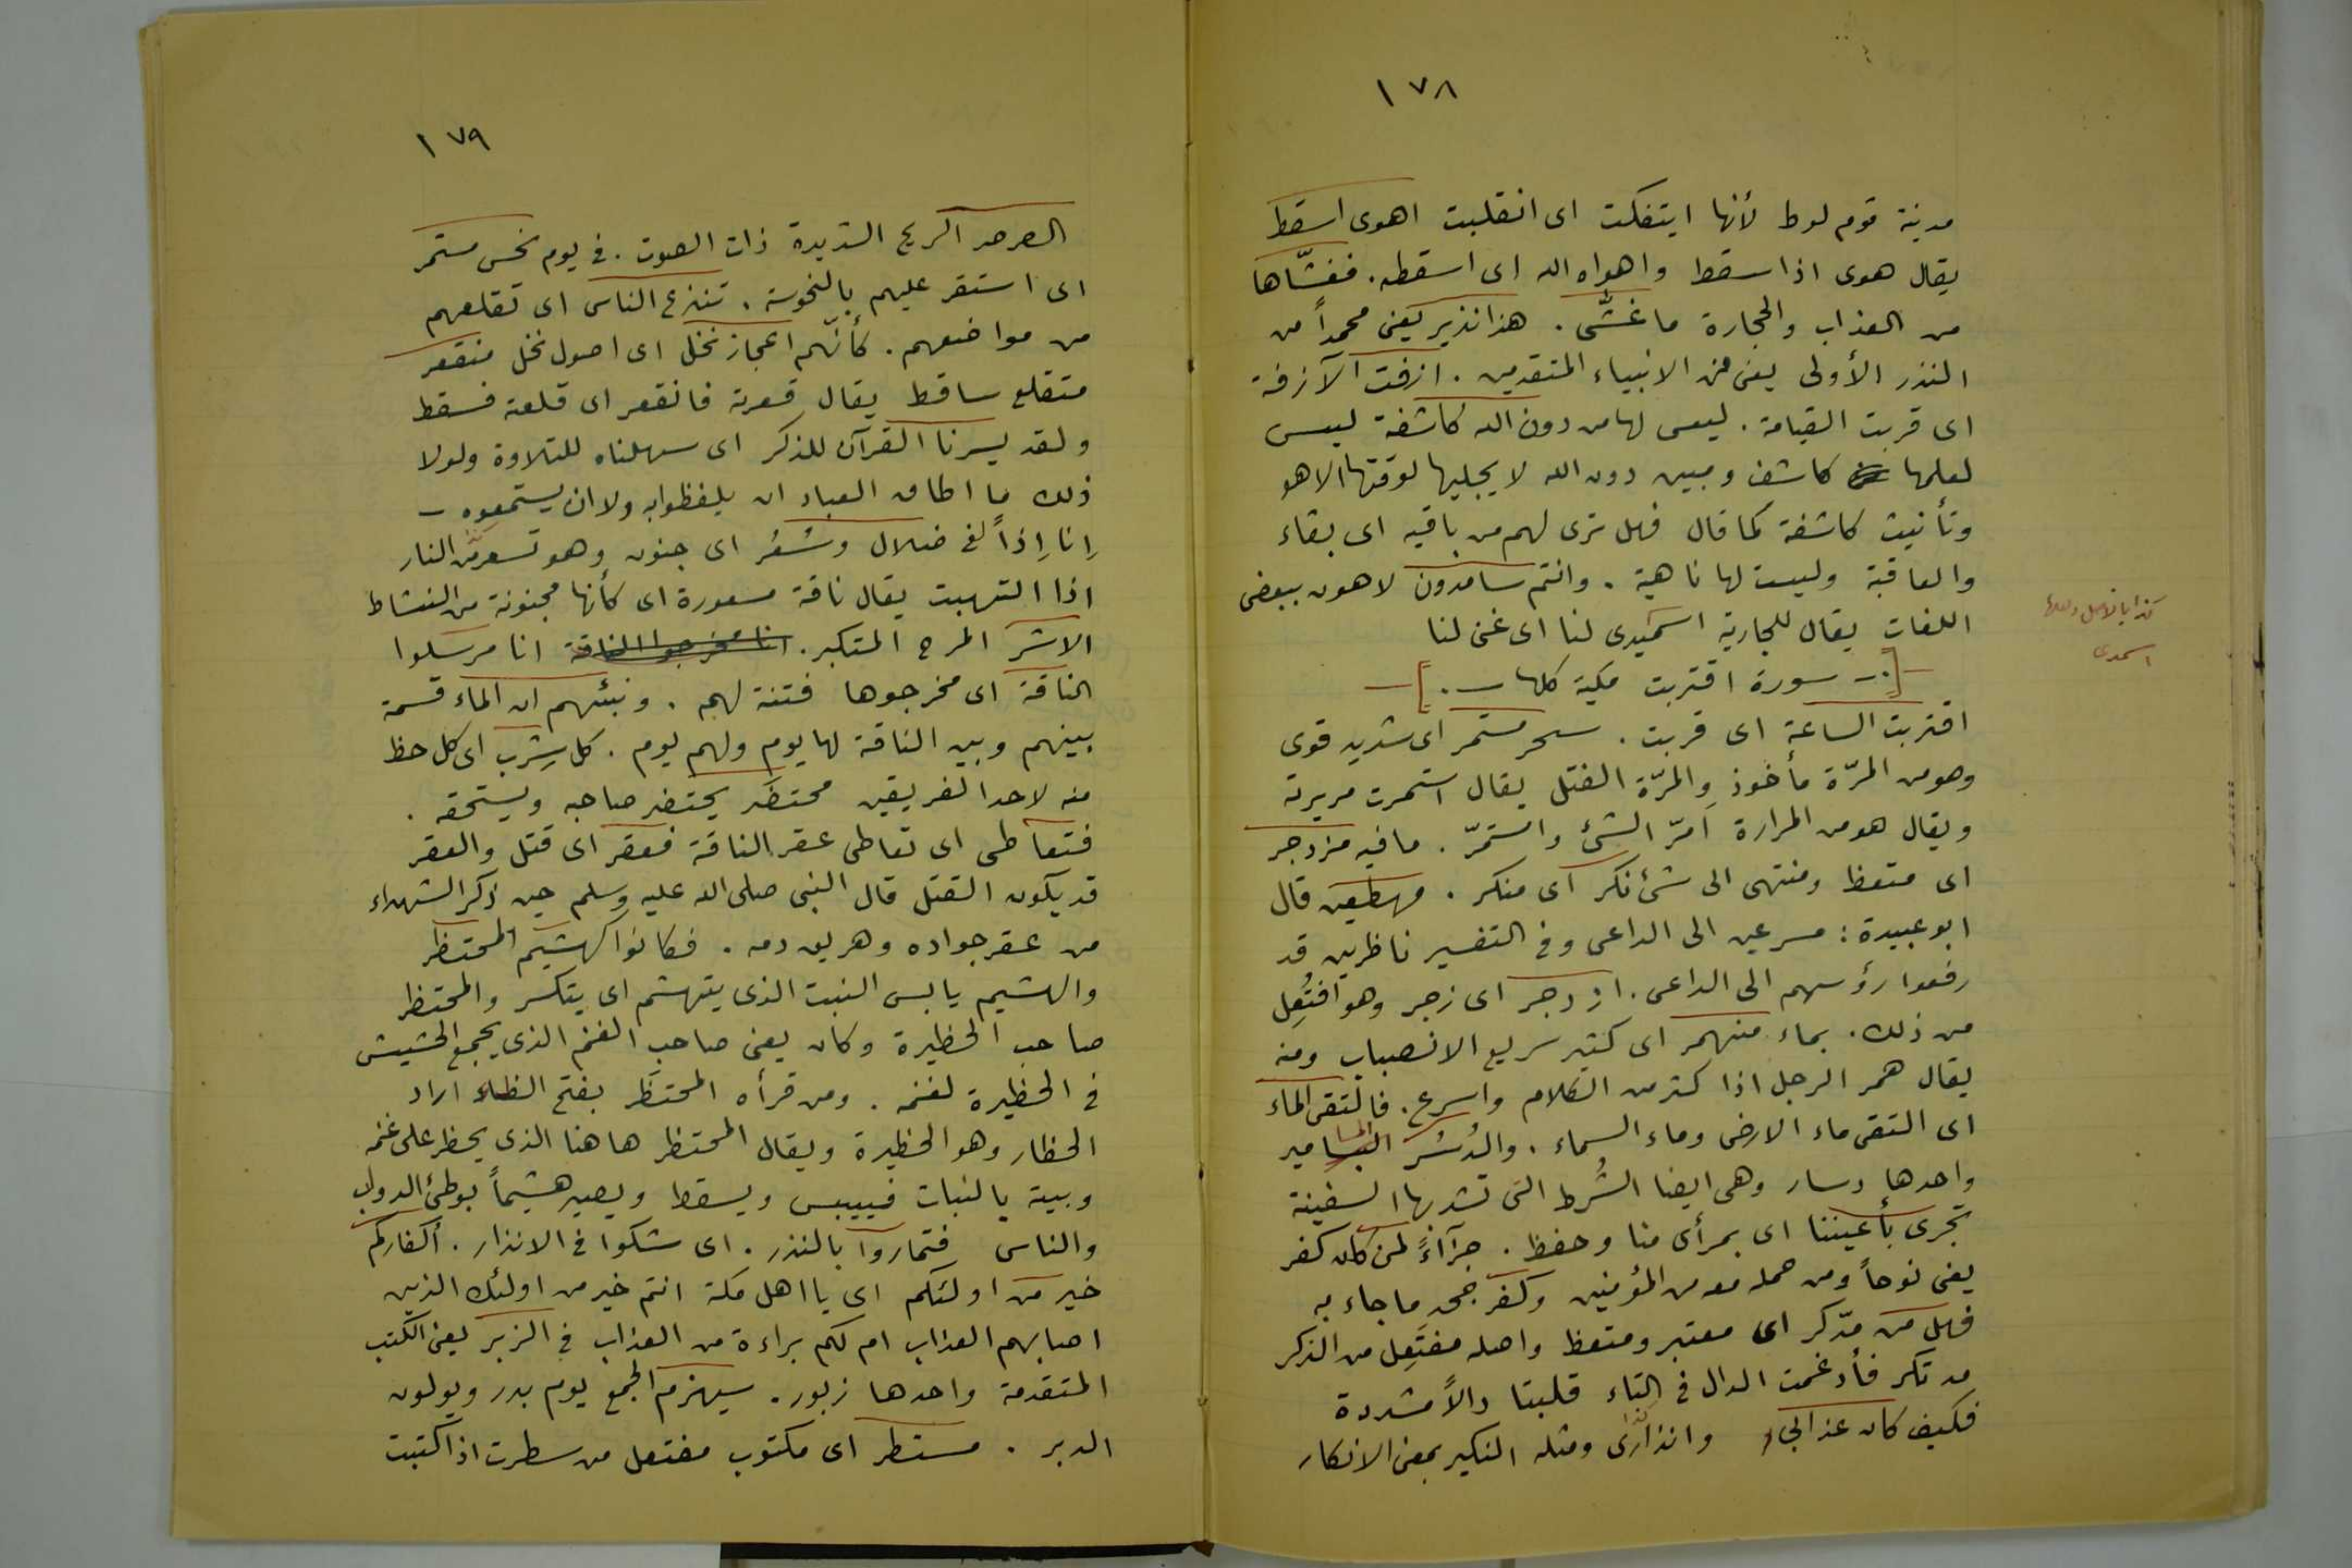 ١٧٨
مدينة قوم لوط لأنها ايتفكت اى انقلبت اهوى اسقط
يقال هوى اذا سقط واهواه الله اى اسقطه. فغشّاها
من العذاب والحجارة ما غشّى. هذا نذير يعنى محمداً من
النذر الأولى يعنى من الانبياء المتقدمين. ازفت الآزفة
اى قربت القيامة. ليس لها من دون الله كاشفة ليس
لعلمها كاشف ومبين دون الله لا يجليها لوقتها الا هو
وتأنيث كاشفة كما قال فهل ترى لهم من باقيه اى بقاء
والعاقبة وليست لها ناهية. وانتم سامدون لاهون ببعض
اللغات يقال للجارية اسميدى لنا اى غنى لنا
كذا بالاصل ولعلها
اسمدى
[.- سورة اقتربت مكية كلها -.]
اقتربت الساعة اى قربت. سحر مستمر اى شديد قوى
وهو من المرّة مأخوذ والمرّة الفتل يقال استمرت مريرته
ويقال هو من المرارة امرّ الشئ واستمرّ. ما فيه مزدجر
اى متعظ ومنتهى الى شئ نكر اى منكر. مهطعين قال
ابو عبيدة: مسرعين الى الداعى وفى التفسير ناظرين قد
رفعوا رؤسهم الى الداعى. ازدجر اى زجر وهو افتُعِل
من ذلك. بماء منهمر اى كثير سريع الانصباب ومنه
يقال همر الرجل اذا كثر من الكلام واسرع. فالتقى الماء
اى التقى ماء الارض وماء السماء. والدُسُر المسامير
واحدها دسار وهى ايضا الشُرط التى تشد بها السفينة
تجرى بأعيننا اى بمرأى منا وحفظ. جزآءً لمن كان كفر
يعنى نوحاً ومن حمله معه من المؤمنين وكفر جحد ما جاء به
فهل من مدّكر اى معتبر ومتعظ واصله مفتَعِل من الذكر
مدتكر فأدغمت الدال فى التاء قلبتا دالاً مشددة
فكيف كان عذابى وانذارى ومثله النكير بمعنى الانكار
١٧٩
الصرصر الريح الشديدة ذات الصوت. فى يوم نحس مستمر
اى استقر عليهم بالنحوسة. تنزع الناس اى تقلعهم
من مواضعهم. كأنّهم اعجاز نخل اى اصول نخل منقعر
متقلع ساقط يقال قعرته فانقعر اى قلعته فسقط
ولقد يسرنا القرآن للذكر اى سهلناه للتلاوة ولولا
ذلك ما اطاق العباد ان يلفظوا به ولا ان يستمعوه -
إنا إذاً لفى ضلال وسُعُر اى جنون وهو تسعرت النار
اذا التهبت يقال ناقة مسعورة اى كأنها مجنونة من النشاط
الاشر المرح المتكبر. انا مخرجوا الناقة انا مرسلوا
الناقة اى مخرجوها فتنة لهم. ونبئهم ان الماء قسمة
بينهم وبين الناقة لها يوم ولهم يوم. كل شِرب اى كل حظ
منه لاحد الفريقين محتضَر يحتضر صاحبه ويستحقه.
فتعاطى اى تعاطى عقر الناقة فعقر اى قتل والعقر
قد يكون القتل قال النبى صلى الله عليه وسلم حين ذكر الشهداء
من عقر جواده وهريق دمه. فكانوا كهشيم المحتظر
والهشيم يابس النبت الذى يتهشم اى يتكسر والمحتظر
صاحب الحظيرة وكان يعنى صاحب الغنم الذى يجمع الحشيش
فى الحظيرة لغنمه. ومن قرأه المحتظَر بفتح الظاء اراد
الحظار وهو الحظيرة ويقال المحتظر هاهنا الذى يحظر على غنمه
وبيته بالنبات فييبس ويسقط ويصير هشيماً بوطئ الدواب
والناس فتماروا بالنذر. اى شكوا فى الانذار. أكفاركم
خير من اولئكم اى يا اهل مكة انتم خير من اولئك الذين
اصابهم العذاب ام لكم براءة من العذاب فى الزبر يعنى الكتب
المتقدمة واحدها زبور. سيهزم الجمع يوم بدر ويولون
الدبر. مستطر اى مكتوب مفتعل من سطرت اذا كتبت